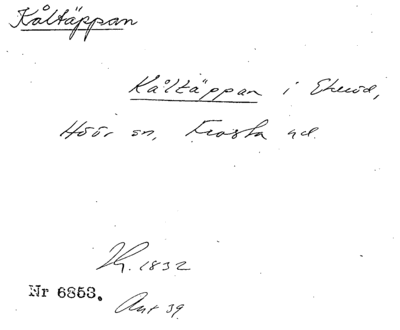 Kåltäppan
Kåltäppan i Ekeröd,
Höör sn, Frosta hd.
Th. 1832
Nr 6853.
Ant 39.